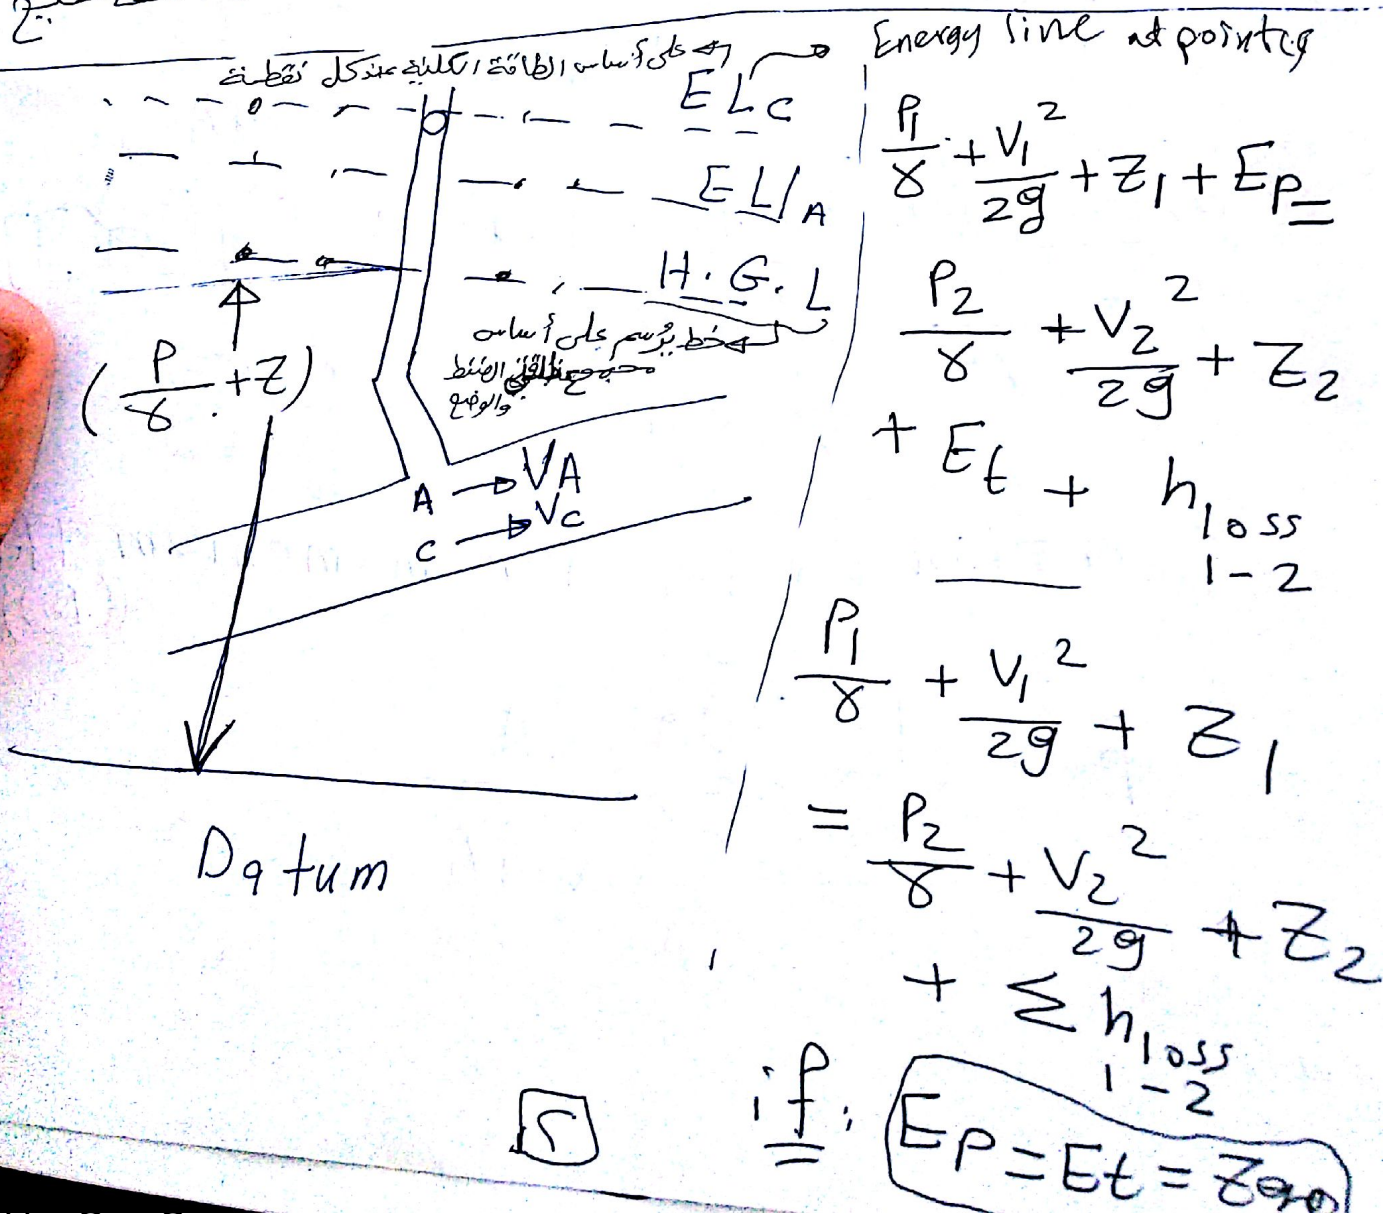 على أساس الطاقة الكلية عند كل نقطة
EL C
EL/A
H.G.L
خط يُرسم على أساس
مجموع الضغط
والوضع
(P/γ + Z)
A → VA
C → VC
Datum
Energy line at point C
P1/γ + V1²/2g + Z1 + Ep =
P2/γ + V2²/2g + Z2
+ Et + h loss
1-2
P1/γ + V1²/2g + Z1
= P2/γ + V2²/2g + Z2
+ Σ h loss
1-2
if: Ep = Et = Zero